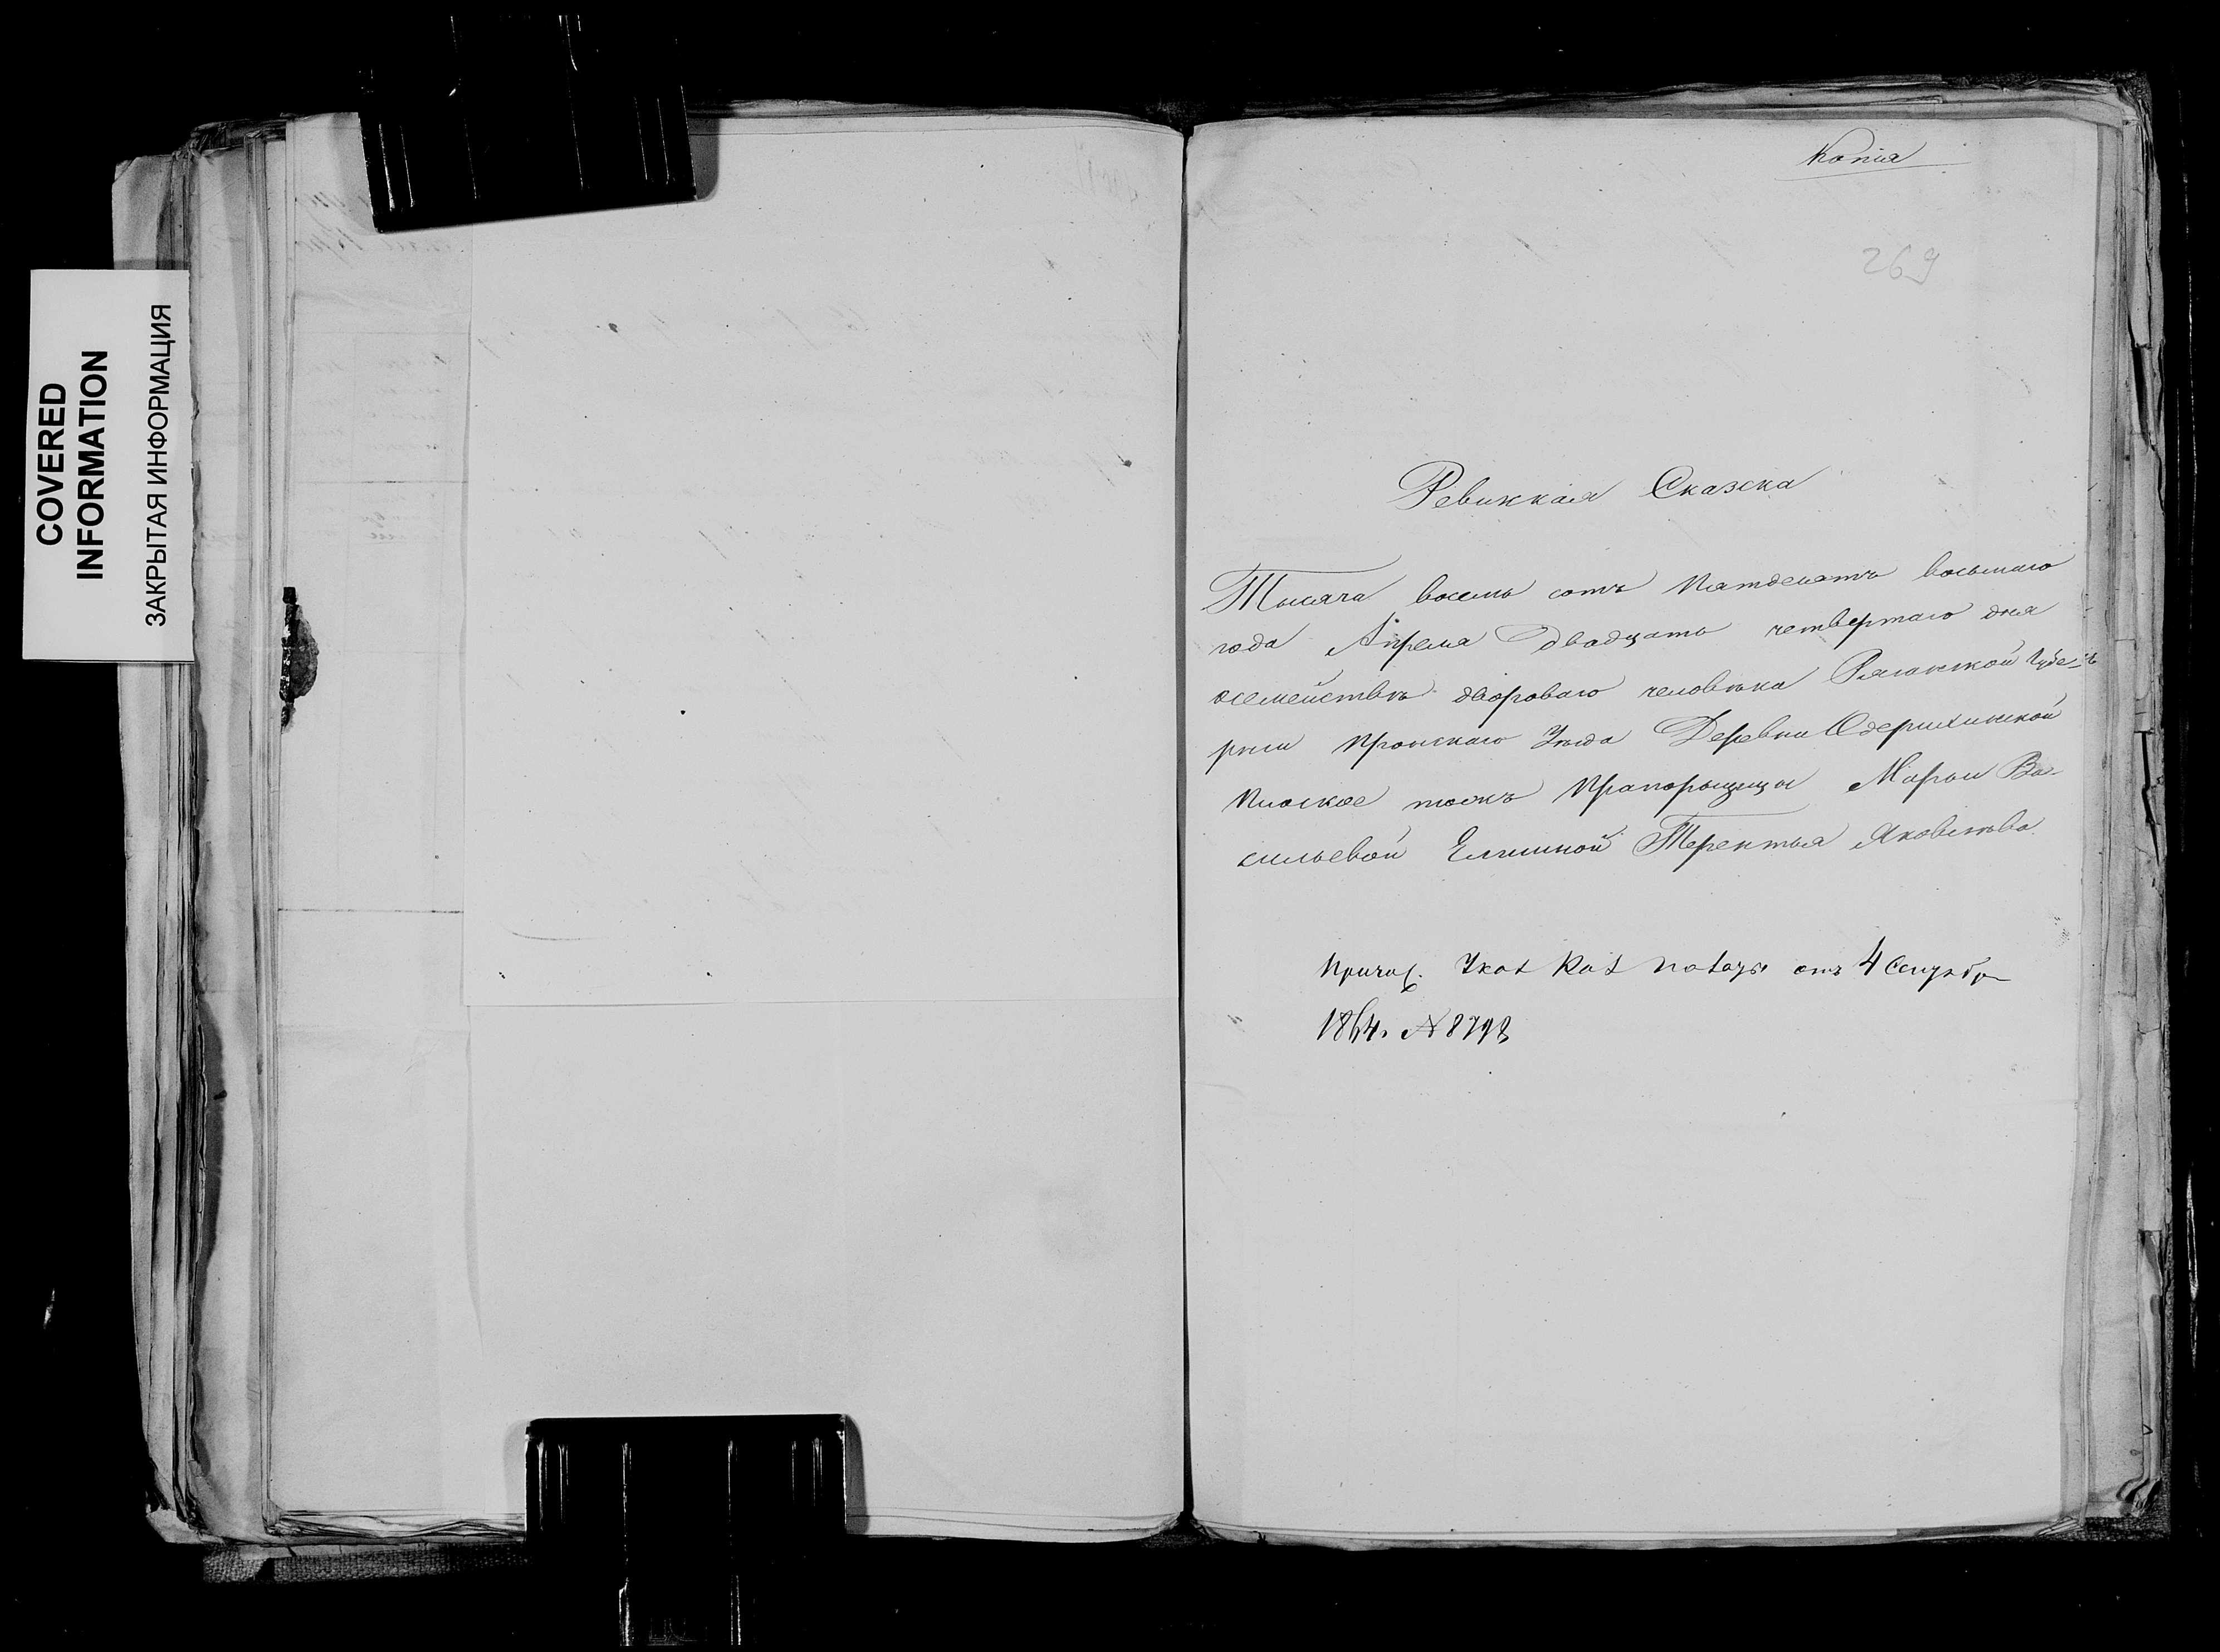 COVERED
INFORMATION
ЗАКРЫТАЯ ИНФОРМАЦИЯ
Копия
269
Ревижкая Сказка
Тысяча восемь сотъ пятдесятъ восьмаго
года Апреля двадцать четвертаго дня
осемействѣ двороваго человѣка Рязанской Губе-
рнии Пронскаго Уѣзда Деревни Одерихинской
Плоское тожъ Прапорщицы Марьи Ва-
сильевой Терентья Яковлѣва
Причис. Указ Каз палаты отъ 4 Сентября
1864. № 8798